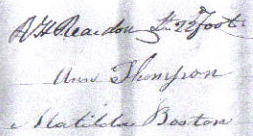 A H Reardon Lt 22d Foot
Ann Thompson
Matilda Boston